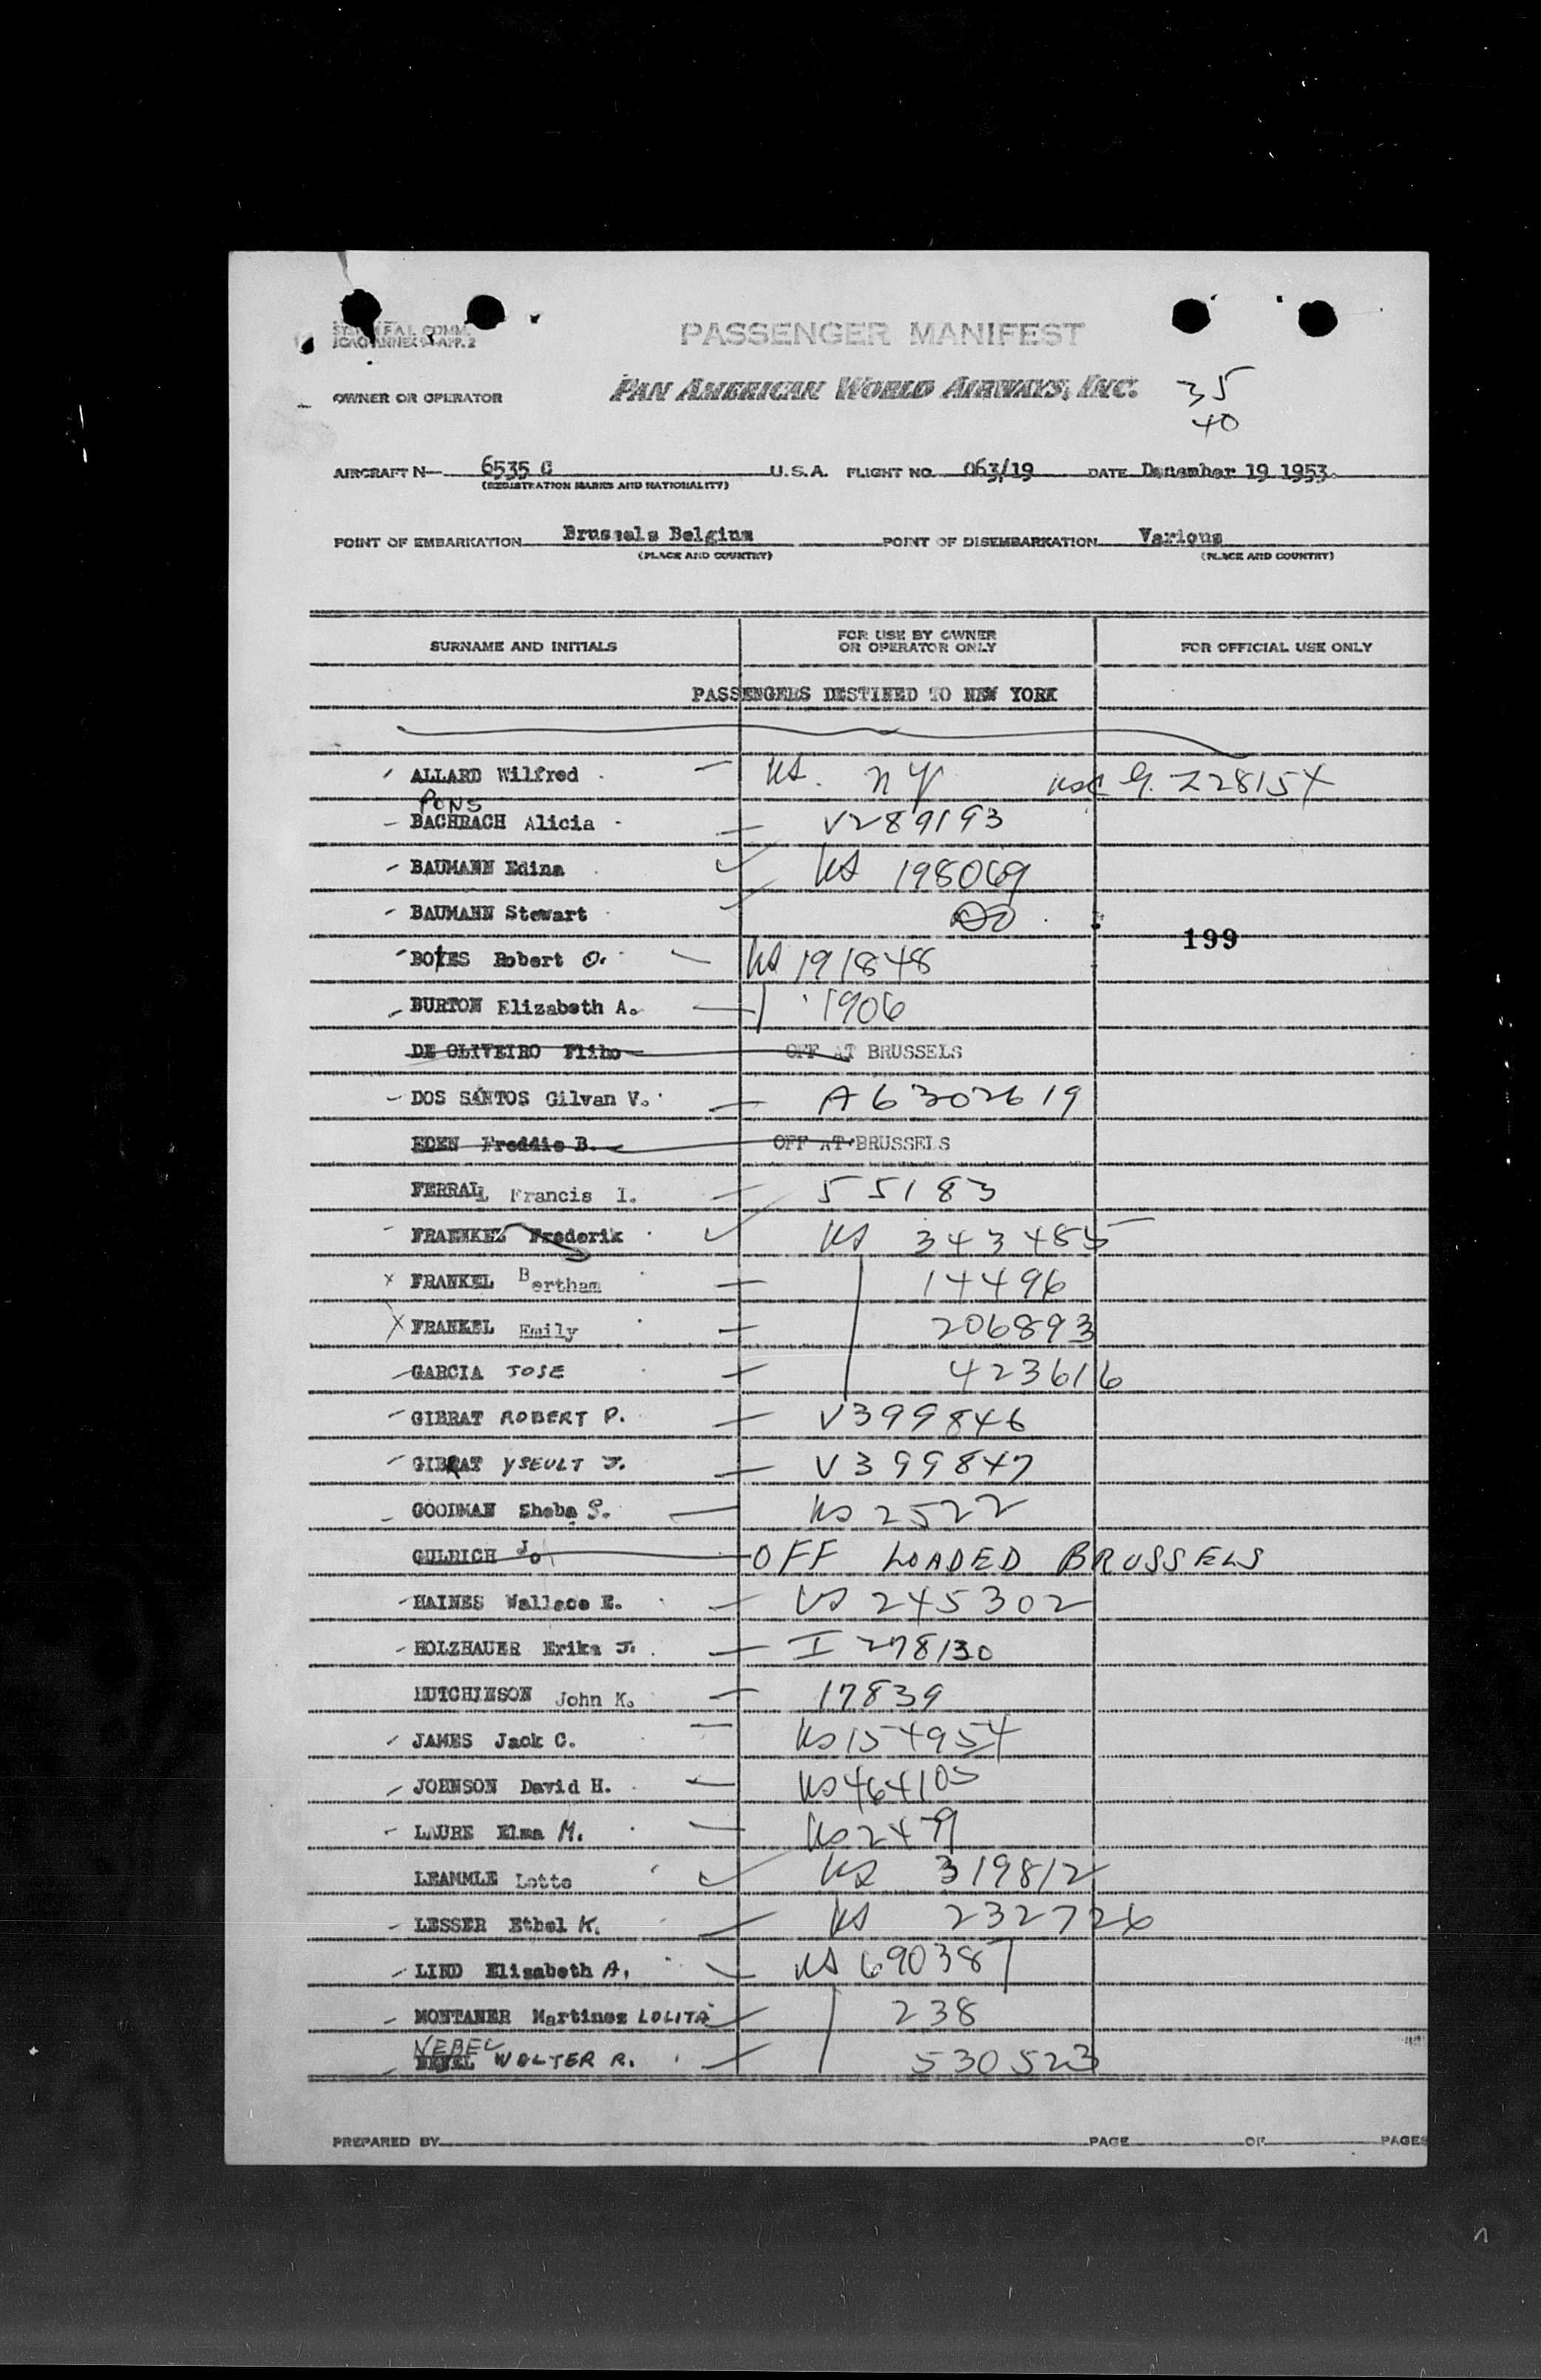 SYSTEM F.A.L. COMM.
ICAO ANNEX 9-APP. 2
PASSENGER MANIFEST
OWNER OR OPERATOR PAN AMERICAN WORLD AIRWAYS, INC. 35
40
AIRCRAFT N 6535 C U.S.A. FLIGHT NO. 063/19 DATE December 19 1953.
(REGISTRATION MARKS AND NATIONALITY)
POINT OF EMBARKATION Brussels Belgium POINT OF DISEMBARKATION Various
(PLACE AND COUNTRY) (PLACE AND COUNTRY)
SURNAME AND INITIALS FOR USE BY OWNER OR OPERATOR ONLY FOR OFFICIAL USE ONLY
PASSENGERS DESTINED TO NEW YORK
ALLARD Wilfred US. NY G. 228154
PONS
BACHRACH Alicia V289193
BAUMANN Edina US 198069
BAUMANN Stewart DO
199
BOTES Robert O. US 191848
BURTON Elizabeth A. 1906
DE OLIVEIRO Fliho OFF AT BRUSSELS
DOS SANTOS Gilvan V. A6302619
EDEN Freddie B. OFF AT BRUSSELS
FERRALL Francis I. 55183
FRAENKEL Frederik US 343485
FRANKEL Bertham 14496
FRANKEL Emily 206893
GARCIA JOSE 423616
GIBRAT ROBERT P. V399846
GIBRAT YSEULT J. V399847
GOODMAN Sheba S. US 2522
GULRICH Jo OFF LOADED BRUSSELS
HAINES Wallace E. US 245302
HOLZHAUER Erika J. I 278130
HUTCHINSON John K. 17839
JAMES Jack C. US 154954
JOHNSON David H. US 464105
LAURE Elma M. US 2479
LEAMMLE Lotte US 319812
LESSER Ethel K. US 232726
LIND Elisabeth A. US 690387
MONTANER Martinez LOLITA 238
NEBEL
WOLTER R. 530523
PREPARED BY PAGE OF PAGES